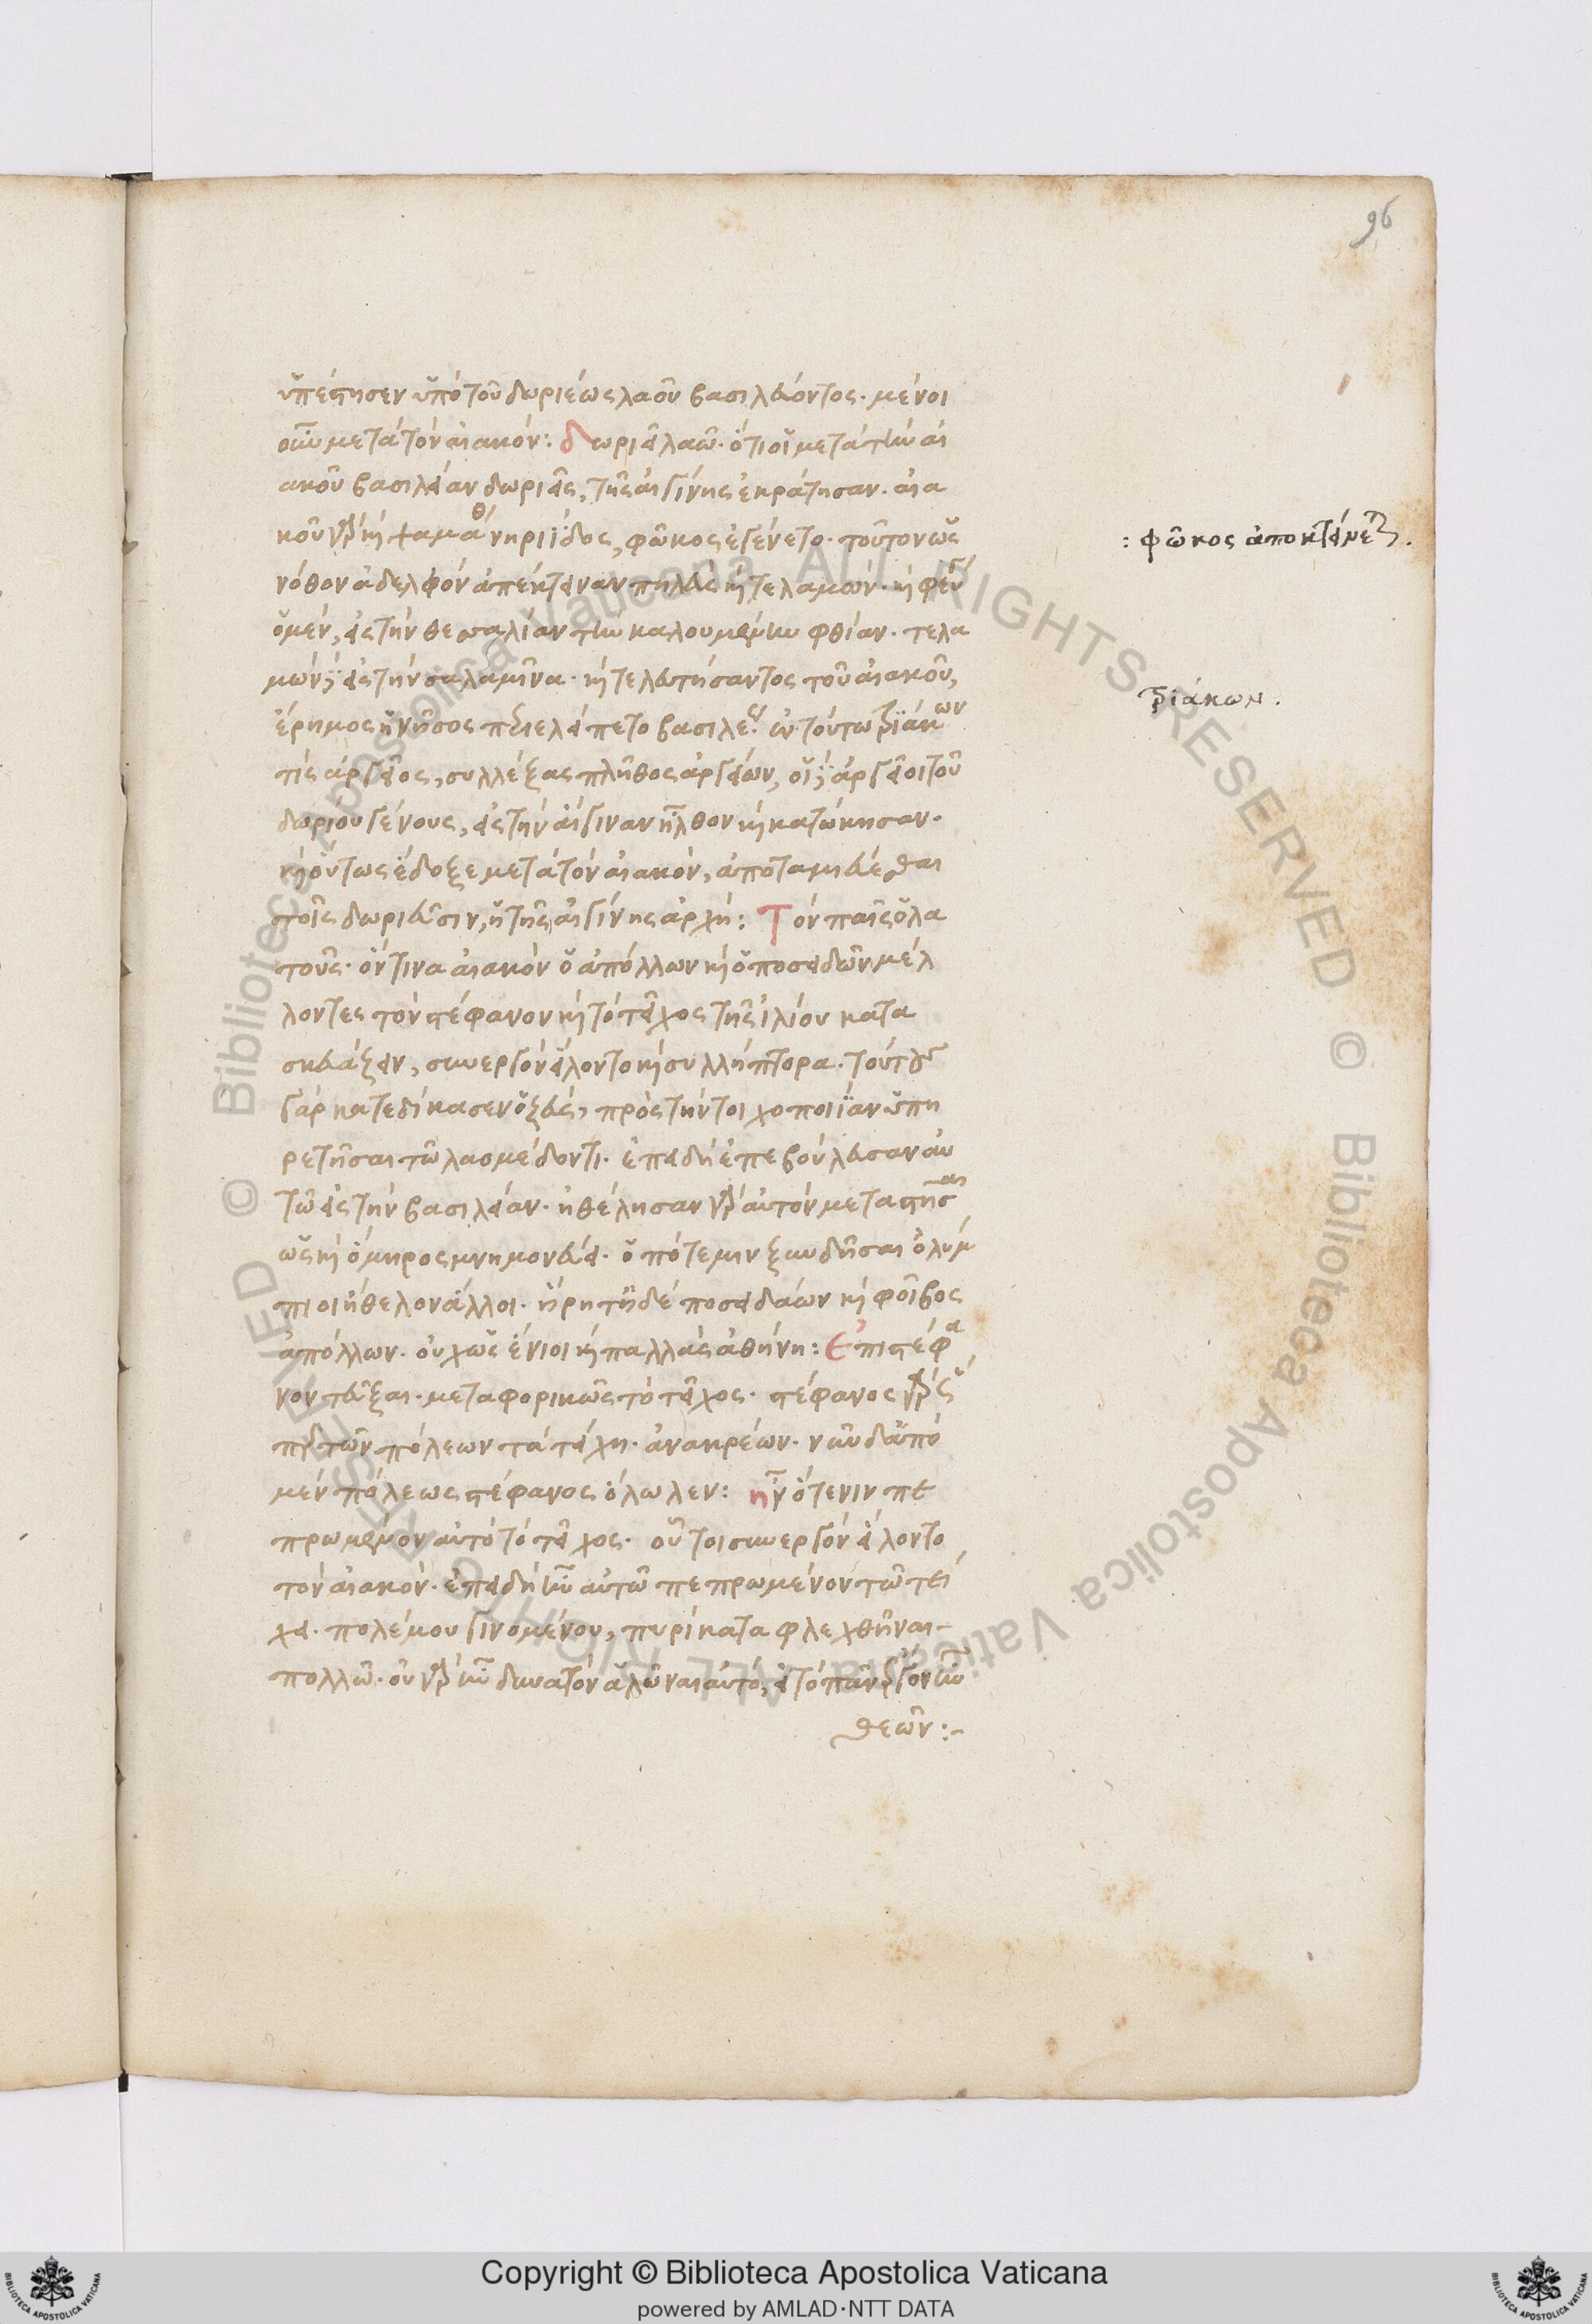 96
ὑπέστησεν ὑπὸ τοῦ δωριέως λαοῦ βασιλεύοντος. μένοι
οὖν μετὰ τὸν αἰακόν: δωριεῖ λαῶ. ὅτι οἱ μετὰ τὴν αἰ
ακοῦ βασιλείαν δωριεῖς, τῆς αἰγίνης ἐκράτησαν. αἰα
κοῦ γὰρ καὶ ψαμάθης νηρηΐδος, φῶκος ἐγένετο. τοῦτον ὡς
: φῶκος ἀποκτείνεται.
νόθον ἀδελφὸν ἀπέκτειναν πηλεὺς καὶ τελαμών. καὶ φεύγει
ὁ μὲν, εἰς τὴν θεσσαλίαν τὴν καλουμένην φθίαν. τελα
μὼν δὲ εἰς τὴν σαλαμῖνα. καὶ τελευτήσαντος τοῦ αἰακοῦ,
ἔρημος ἡ νῆσος περιελείπετο βασιλέως. ἐν τούτω τριάκων
τριάκων.
τὶς ἀργεῖος, συλλέξας πλῆθος ἀργείων, οἱ δὲ ἀργεῖοι τοῦ
δωρίου γένους, εἰς τὴν αἴγιναν ἦλθον καὶ κατώκησαν.
καὶ οὕτως ἔδοξε μετὰ τὸν αἰακόν, ἀποταμιεύεσθαι
τοῖς δωριεῦσιν, ἡ τῆς αἰγίνης ἀρχή: Τὸν παῖς ὁ λα
τοῦς. ὅντινα αἰακὸν ὁ ἀπόλλων καὶ ὁ ποσειδῶν μέλ
λοντες τὸν στέφανον καὶ τὸ τεῖχος τῆς ἰλίου κατα
σκευάζειν, συνεργὸν εἵλοντο καὶ συλλήπτορα. τούτους
γὰρ κατεδίκασεν ὁ ζεύς, πρὸς τὴν τοιχοποιΐαν ὑπη
ρετῆσαι τῶ λαομέδοντι. ἐπειδὴ ἐπεβούλευσαν αὐ
τῶ εἰς τὴν βασιλείαν. ἠθέλησαν γὰρ αὐτὸν μεταστῆσαι
ὡς καὶ ὅμηρος μνημονεύει. ὁππότε μιν ξυνδῆσαι ὀλύμ
πιοι ἤθελον ἄλλοι. ἥρη τ' ἠδὲ ποσειδάων καὶ φοῖβος
ἀπόλλων. οὐχ ὡς ἔνιοι καὶ παλλὰς ἀθήνη: Ἐπὶ στέφα
νον τεῦξαι. μεταφορικῶς τὸ τεῖχος. στέφανος γὰρ ὥς
περ τῶν πόλεων τὰ τείχη. ἀνακρέων. νῦν δ' ἀπὸ
μὲν πόλεως στέφανος ὄλωλεν: ἦν ὅτε νιν πε
πρωμένον αὐτὸ τὸ τεῖχος. οὗτοι συνεργὸν εἵλοντο
τὸν αἰακόν. ἐπειδὴ ἦν αὐτῶ πεπρωμένον τῶ τεί
χει. πολέμου γινομένου, πυρὶ καταφλεχθῆναι
πολλῶ. οὐ γὰρ ἦν δυνατὸν ἁλῶναι αὐτό, εἰ τὸ πᾶν ἔργον ἦν
θεῶν:-
Copyright © Biblioteca Apostolica Vaticana
powered by AMLAD·NTT DATA